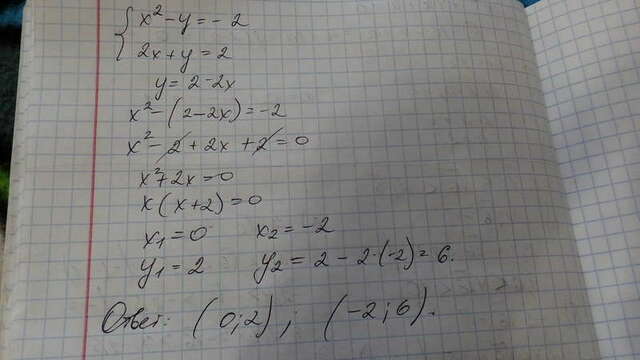 { x² - y = - 2
2x + y = 2
y = 2 - 2x
x² - (2 - 2x) = -2
x² - 2 + 2x + 2 = 0
x² + 2x = 0
x (x + 2) = 0
x₁ = 0 x₂ = -2
y₁ = 2 y₂ = 2 - 2·(-2) = 6.
Ответ: (0; 2); (-2; 6).